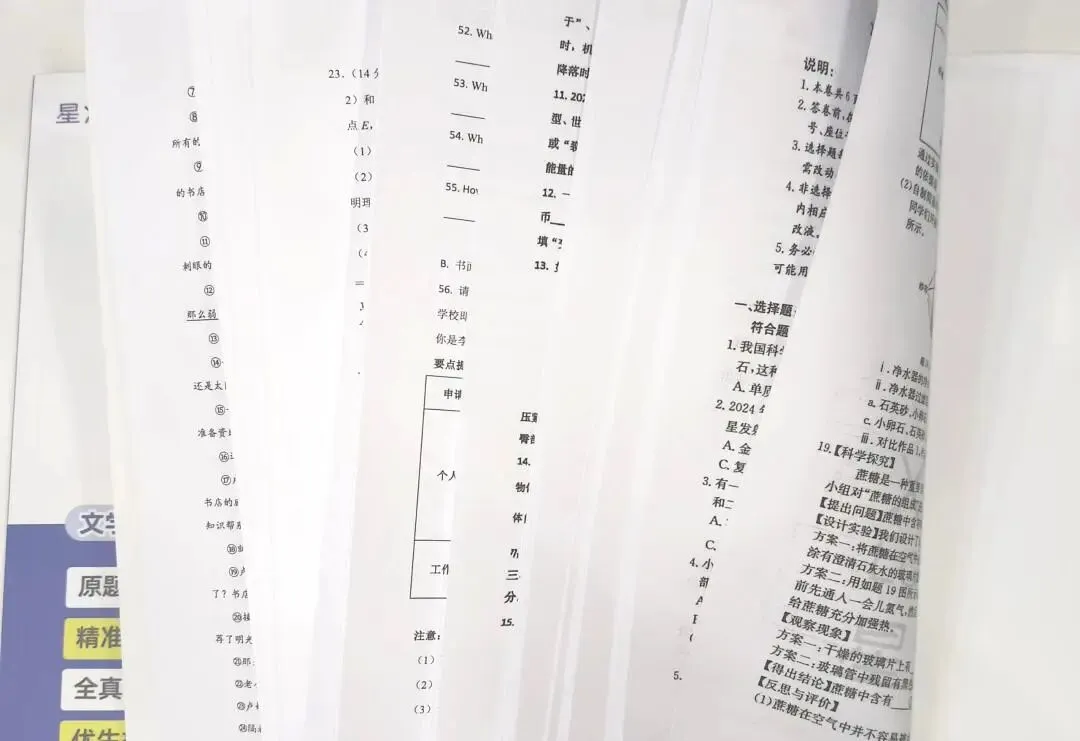 星
文学
原题
精准
全真
优先
⑦
⑧
所有的
⑨
的书店
⑩
⑪
刺眼的
⑫
那么弱
⑬
⑭
还是太
⑮
准备费
⑯
⑰
书店的
知识帮
⑱
⑲
了？书店
⑳
再了明光
㉑那
㉒老
㉓卢
㉔隔
23.（14分
2）和
点 E，
（1）
（2）
明理
（3
52. Wh
53. Wh
54. Wh
55. How
B. 书面
56. 请
学校
你是李
要点提
申请
个人
工作
注意：
（1）
（2）
（3）
于”、
时，机
降落时
11. 202
型、世
或“
能量的
12. 一
币
填“
13.
压
臀部
14.
物体
体
三
分
15.
说明：
1. 本卷共 6 页
2. 答卷前，
号、座位
3. 选择题
需改动
4. 非选择
内相应
改液。
5. 务必
可能用
一、选择题
符合题
1. 我国科学
石，这种
A. 单质
2. 2024 年
星发射
A. 金
C. 复
3. 有一
和二
A.
C.
4. 小
部
A
5.
通过实
的依据
(2)自制简
同学们
所示。
ⅰ. 净水器的
ⅱ. 净水器过滤
a. 石英砂、小卵石
c. 小卵石、石英砂
ⅲ. 对比作品 1，
19.【科学探究】
蔗糖是一种重要
小组对“蔗糖的组成”
【提出问题】蔗糖中含
【设计实验】我们设计了
方案一：将蔗糖在空气中
涂有澄清石灰水的玻璃
方案二：用如题 19 图所示
前先通入一会儿氮气，
给蔗糖充分加强热。
【观察现象】
方案一：干燥的玻璃片上有
方案二：玻璃管中残留有黑色
【得出结论】蔗糖中含有
【反思与评价】
(1)蔗糖在空气中并不容易被